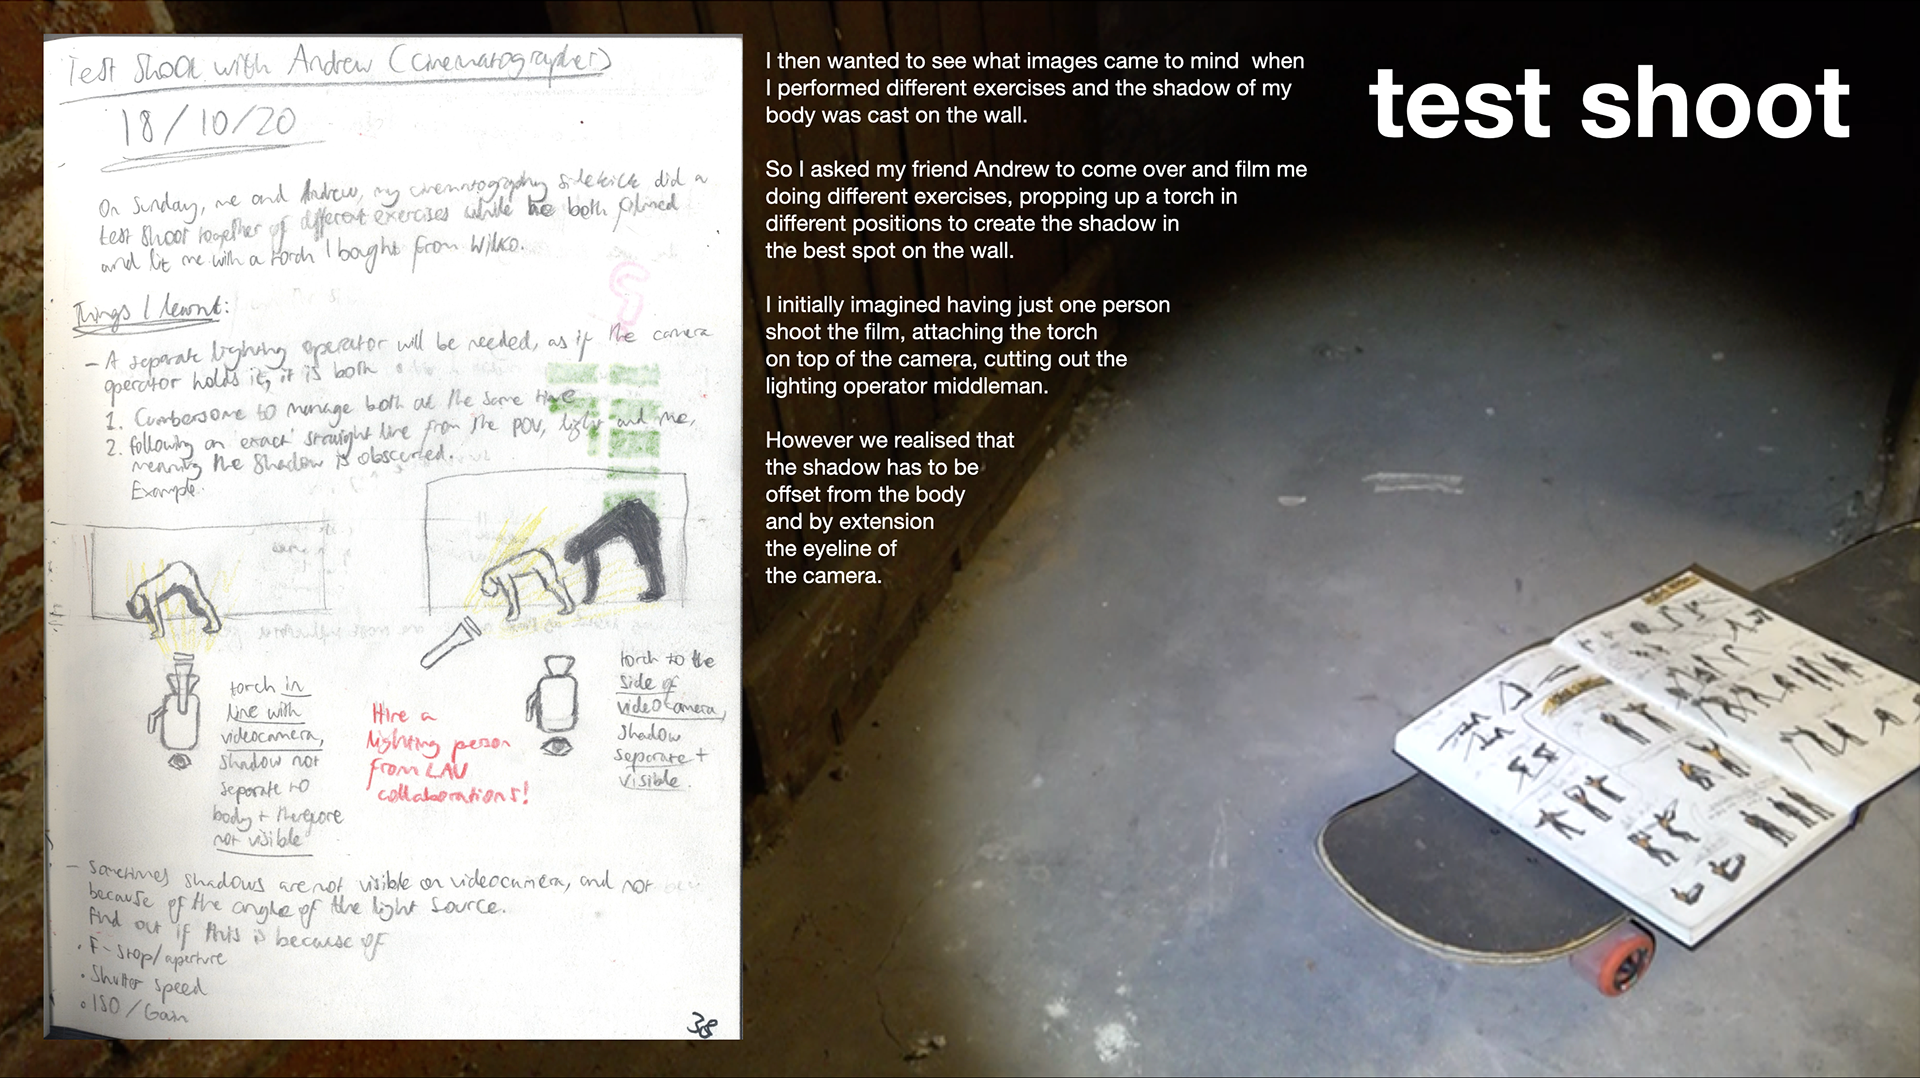 Test Shoot with Andrew (cinematographer)
18/10/20
On Sunday, me and Andrew, my cinematography sidekick did a
test shoot together of different exercises while he both filmed
and lit me with a torch I bought from Wilko.
Things I learnt:
- A separate lighting operator will be needed, as if the camera
operator holds it, it is both
1. Cumbersome to manage both at the same time
2. following an 'exact' straight line from the POV, light and me,
meaning the shadow is obscured.
Example.
torch in
line with
videocamera,
shadow not
separate to
body + therefore
not visible
Hire a
lighting person
from LAU
collaborations!
torch to the
side of
videocamera,
shadow
separate +
visible.
- Sometimes shadows are not visible on videocamera, and not
because of the angle of the light source.
Find out if this is because of
• F-stop/aperture
• Shutter speed
• ISO/Gain
38
I then wanted to see what images came to mind  when
I performed different exercises and the shadow of my
body was cast on the wall.
So I asked my friend Andrew to come over and film me
doing different exercises, propping up a torch in
different positions to create the shadow in
the best spot on the wall.
I initially imagined having just one person
shoot the film, attaching the torch
on top of the camera, cutting out the
lighting operator middleman.
However we realised that
the shadow has to be
offset from the body
and by extension
the eyeline of
the camera.
test shoot